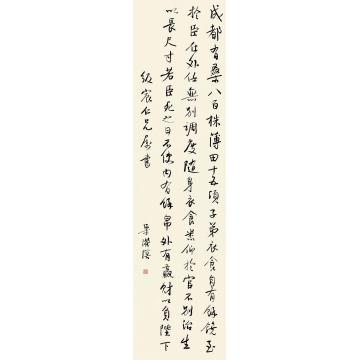 成都有桑八百株薄田十五頃子弟衣食自有餘饒至
於臣在外任無別調度隨身衣食悉仰於官不別治生
以長尺寸若臣死之日不使內有餘帛外有贏財以負陛下
宸仁兄屬書
吳